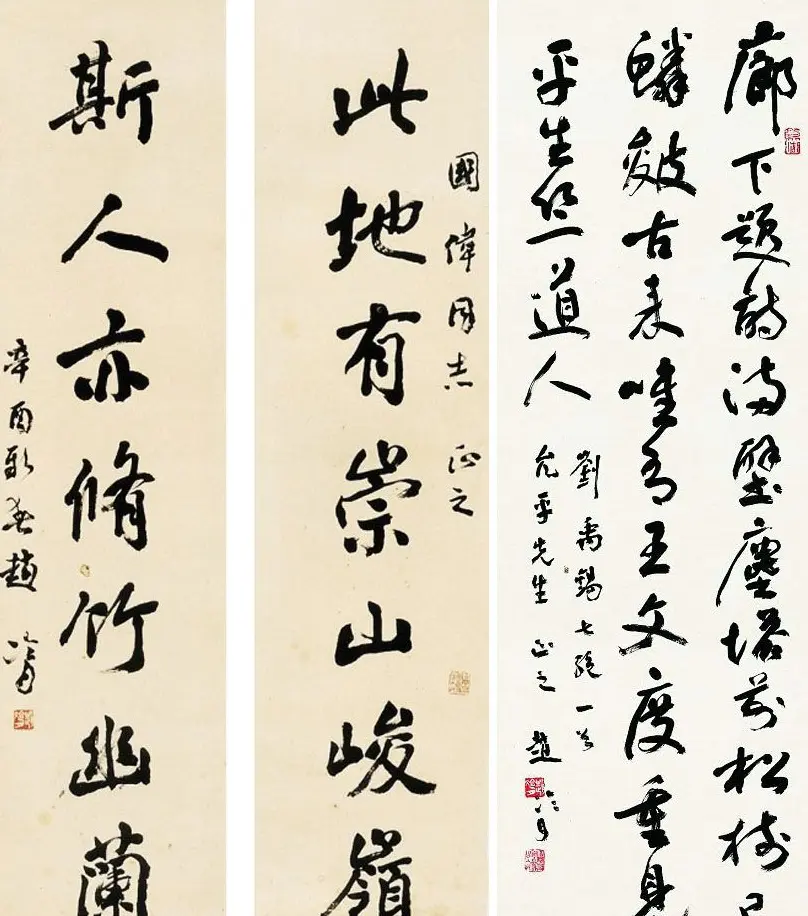 廊下題詩滿壁塵塔前松樹已
鱗皴古來唯有王文度重見
平生竺道人
劉禹錫七絕一首
允平先生正之 趙冷月
國偉同志正之
此地有崇山峻嶺
斯人亦脩竹幽蘭
辛酉新春趙冷月